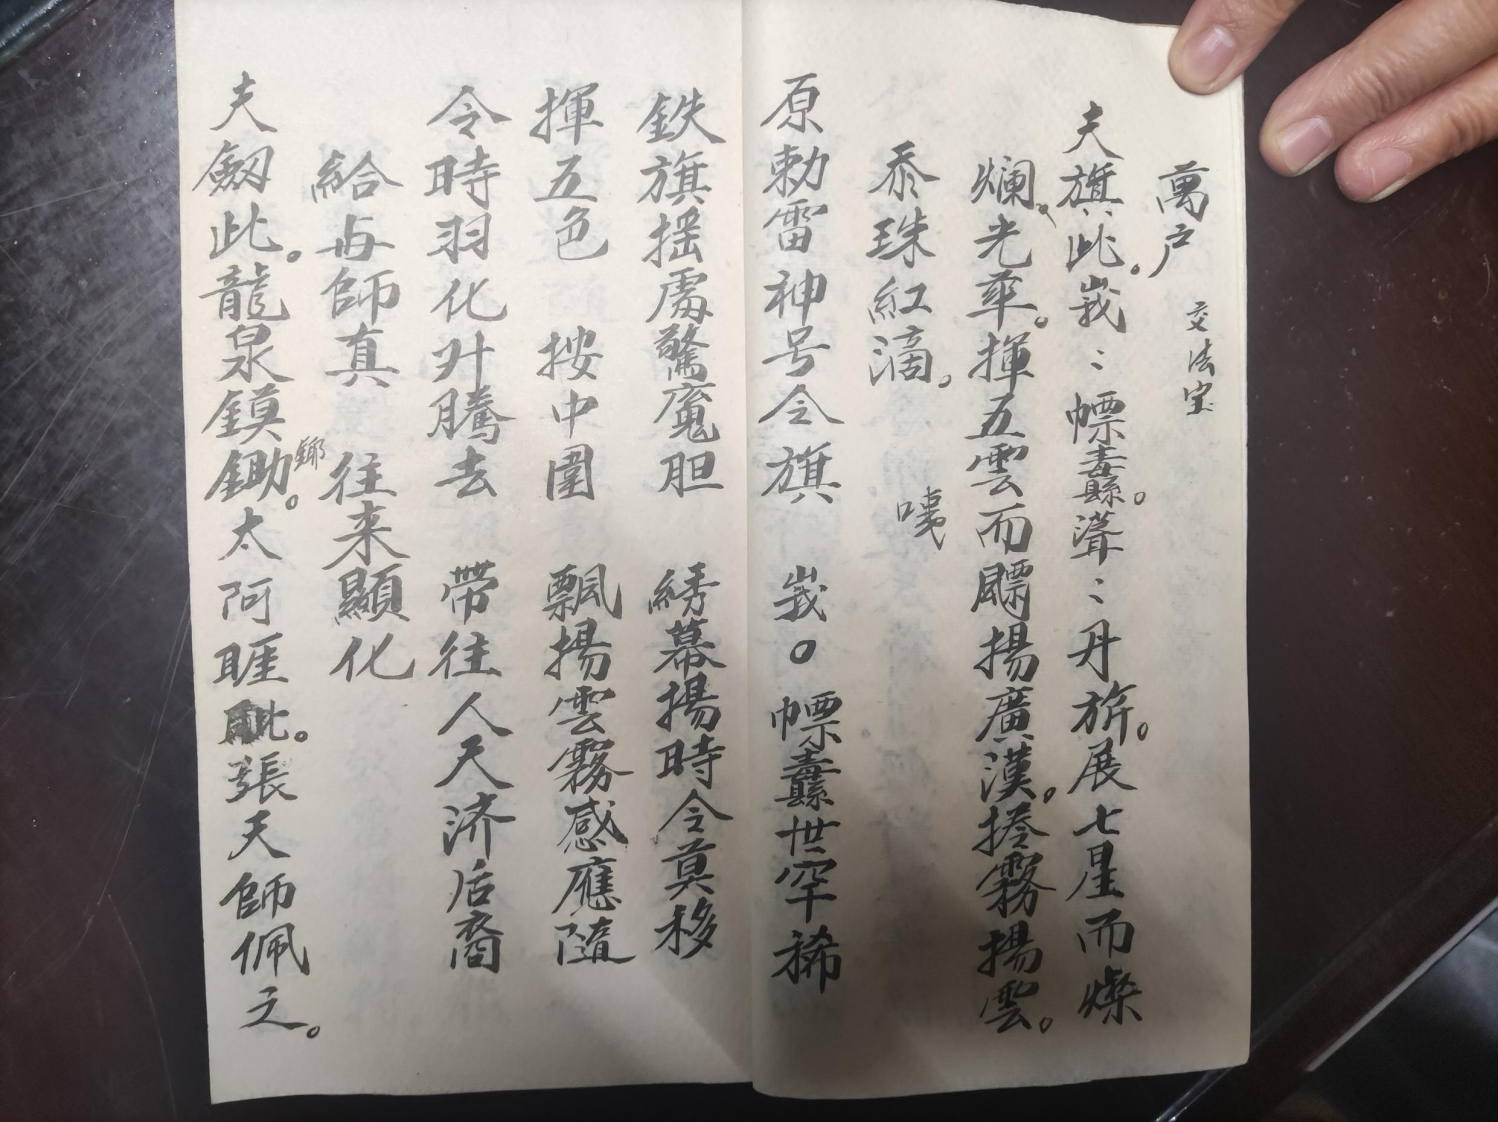 萬户 交法宝
夫旗此。峩〻幖纛。濷〻丹旂。展七星而燦
爛。光華。揮五雲而飃揚廣漢。捲霧揚雲。
泰珠紅滴。 咦
原勅雷神号令旗 峩。幖纛世罕稀
鉄旗揺處驚魔胆 綉幕揚時令莫移
揮五色 按中圍 飄揚雲霧感應隨
令時羽化升騰去 帶往人天济后裔
給与師真 往来顯化
夫劔此。龍泉鏌鋤。鎁太阿睚眦。張天師佩之。